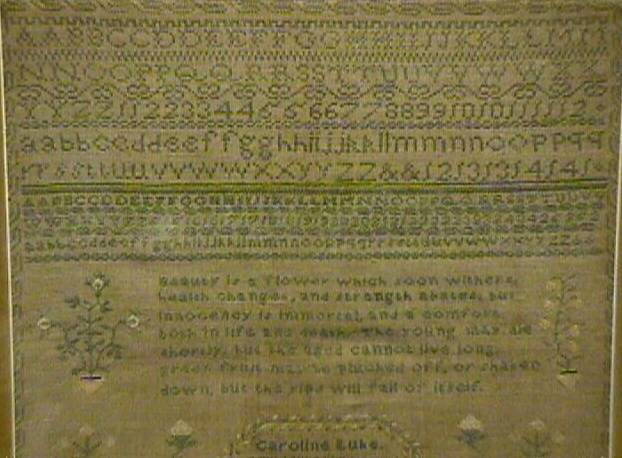 AABBCCDDEEFFGGHHIIJJKKLLMM
NNOOPPQQRRSSTTUUVVWWXX
YYZZ1122334455667788991010111112
aabbccddeeffgghhiijjkkllmmnnooppqq
rrssttuuvvwwxxyyzz&&1213131414
AABBCCDDEEFFGGHHIIJJKKLLMMNNOOPPQQRRSSTTUUVV
aabbccddeeffgghhiijjkkllmmnnooppqqrrssttuuvvwwxxyyzz&
Beauty is a flower which soon withers,
health changes, and strength abates, but
innocency is immortal, and a comfort
both in life and death. The young may die
shortly, but the aged cannot live long,
green fruit may be plucked off, or shaken
down, but the ripe will fall of itself.
Caroline Luke.